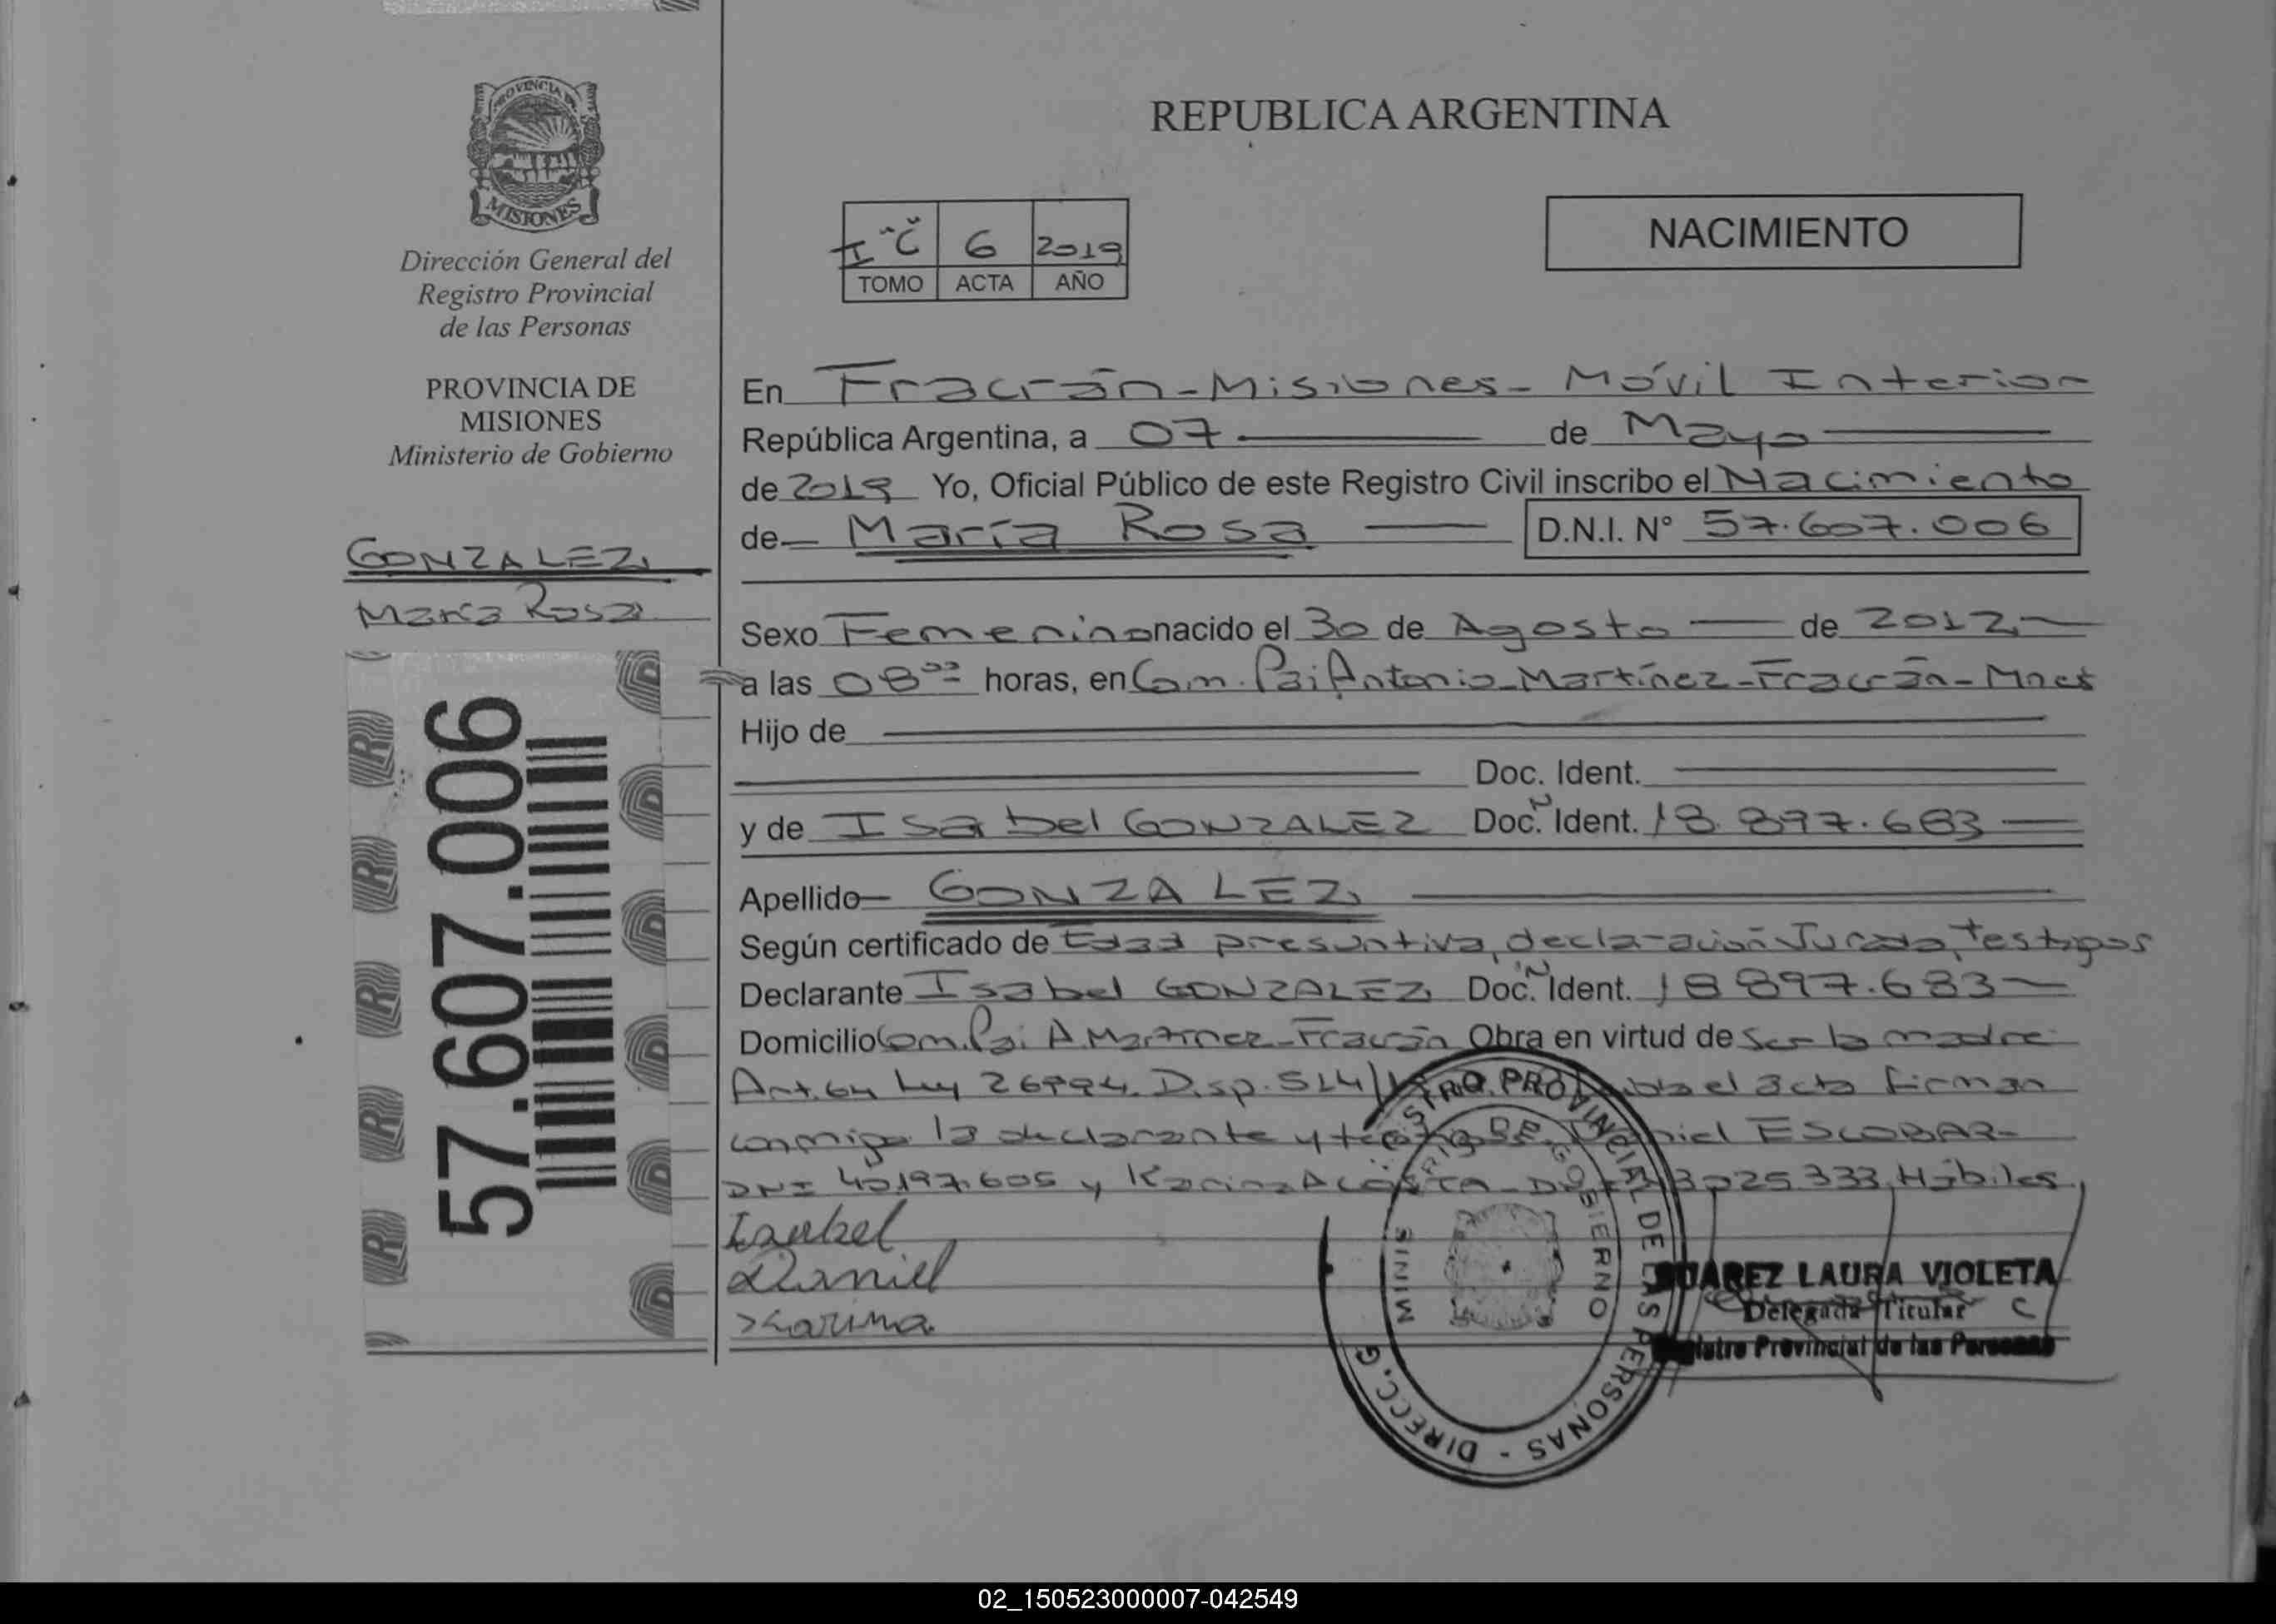 PROVINCIA DE
MISIONES
Dirección General del
Registro Provincial
de las Personas
PROVINCIA DE
MISIONES
Ministerio de Gobierno
GONZALEZ,
María Rosa
57.607.006
REPUBLICA ARGENTINA
NACIMIENTO
I "C" 6 2019
TOMO ACTA AÑO
En Fracrán - Misiones - Móvil Interior
República Argentina, a 07 de Mayo
de 2019 Yo, Oficial Público de este Registro Civil inscribo el Nacimiento
de María Rosa D.N.I. N° 57.607.006
Sexo Femenino nacido el 30 de Agosto de 2012
a las 08 horas, en Com. Pai Antonio Martínez - Fracrán - Mnes
Hijo de
Doc. Ident.
y de Isabel GONZALEZ Doc. N Ident. 18.897.683
Apellido GONZALEZ
Según certificado de Edad presuntiva, declaración Jurada, testigos
Declarante Isabel GONZALEZ Doc. N Ident. 18897.683
Domicilio Com. Pai A. Martínez - Fracrán Obra en virtud de ser la madre
Art. 64 Ley 26994. Disp. 514/ el acta firman
conmigo la declarante y testigos Daniel ESCOBAR -
DNI 40.197.605 y Karina ACOSTA 025333, Hábiles
Isabel
Daniel
Karina
DIRECC. G STRO PROVINCIAL DE LAS PERSONAS
MINIS DE GOBIERNO
SUAREZ LAURA VIOLETA
Delegada Titular C
Registro Provincial de las Personas
02_150523000007-042549